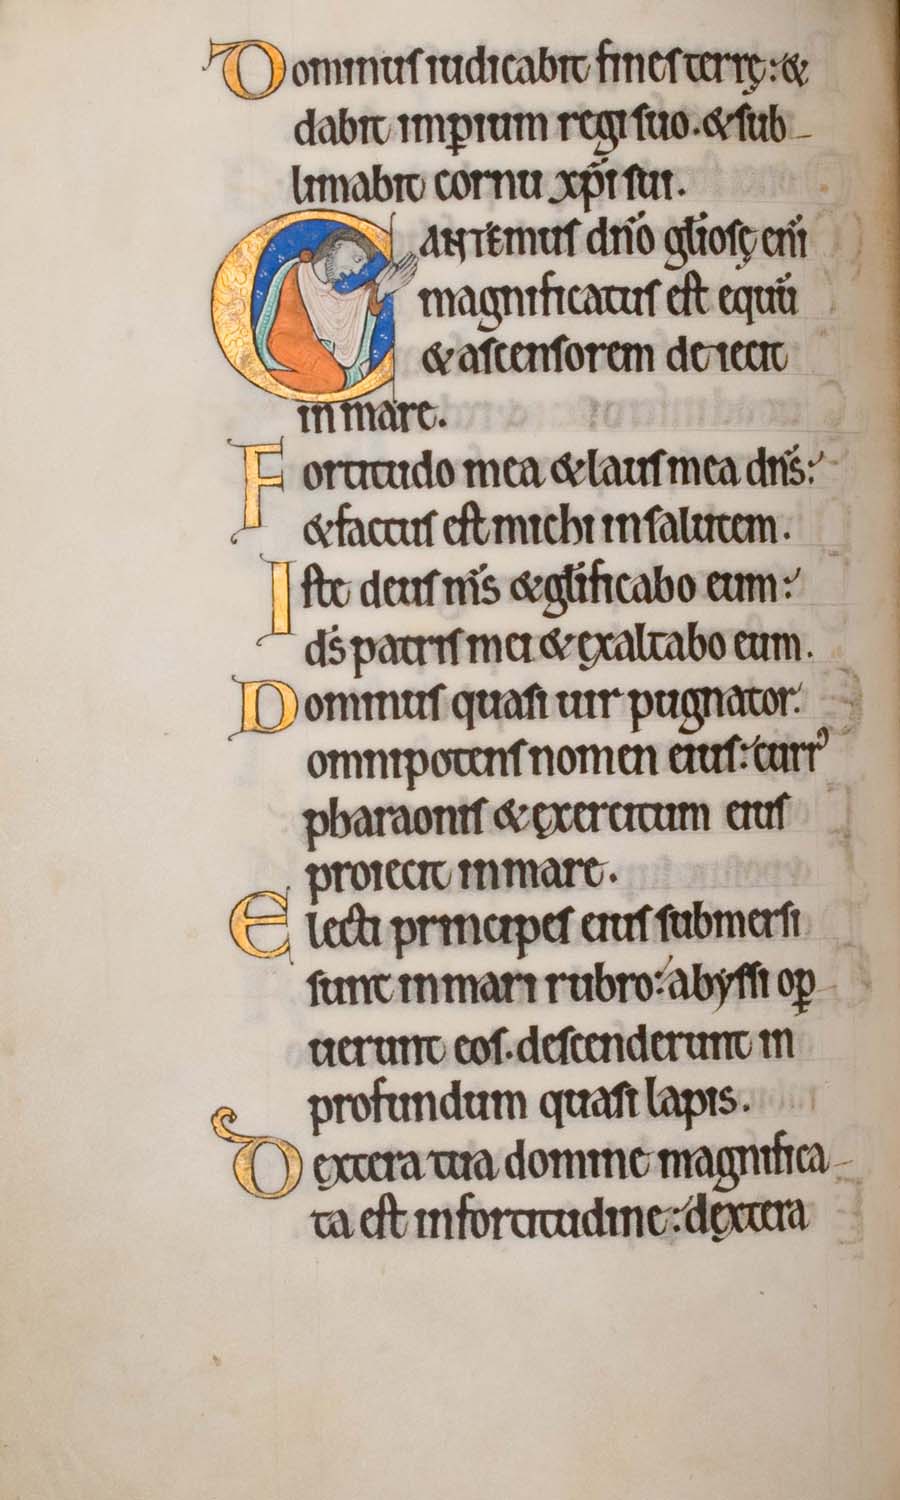 Dominus iudicabit fines terrę: &
dabit imꝑium regi suo. & sub-
limabit cornu xp̄i sui.
CANTEmus dn̄o gl̄iosę eni̅
magnificatus est equū
& ascensorem deiecit
in mare.
Fortitudo mea & laus mea dn̄s:
& factus est michi in salutem.
Iste deus nr̄s & gl̄ificabo eum:
ds̄ patris mei & ęxaltabo eum.
Dominus quasi uir pugnator.
omnipotens nomen eius: curr᾽
pharaonis & ęxercitum eius
proiecit in mare.
Electi principes eius submersi
sunt in mari rubro: abyssi oꝑ
uerunt eos. descenderunt in
profundum quasi lapis.
Dęxtera tua domine magnifica-
ta est in fortitudine: dęxtera